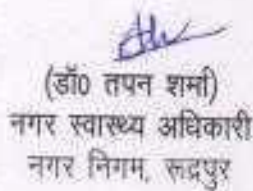 (डॉ0 तपन शर्मा)
नगर स्वास्थ्य अधिकारी
नगर निगम, रूद्रपुर